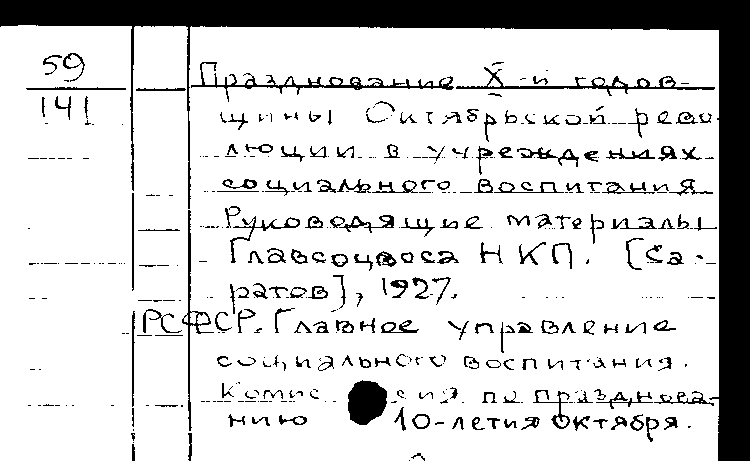 59
141
Празднование X-й годов-
щины Октябрьской рево-
люции в учреждениях
социального воспитания
Руководящие материалы
Главсоцвоса НКП. [Са-
ратов], 1927.
РСФСР. Главное управление
социального воспитания.
Комиссия по празднова-
нию 10-летия Октября.